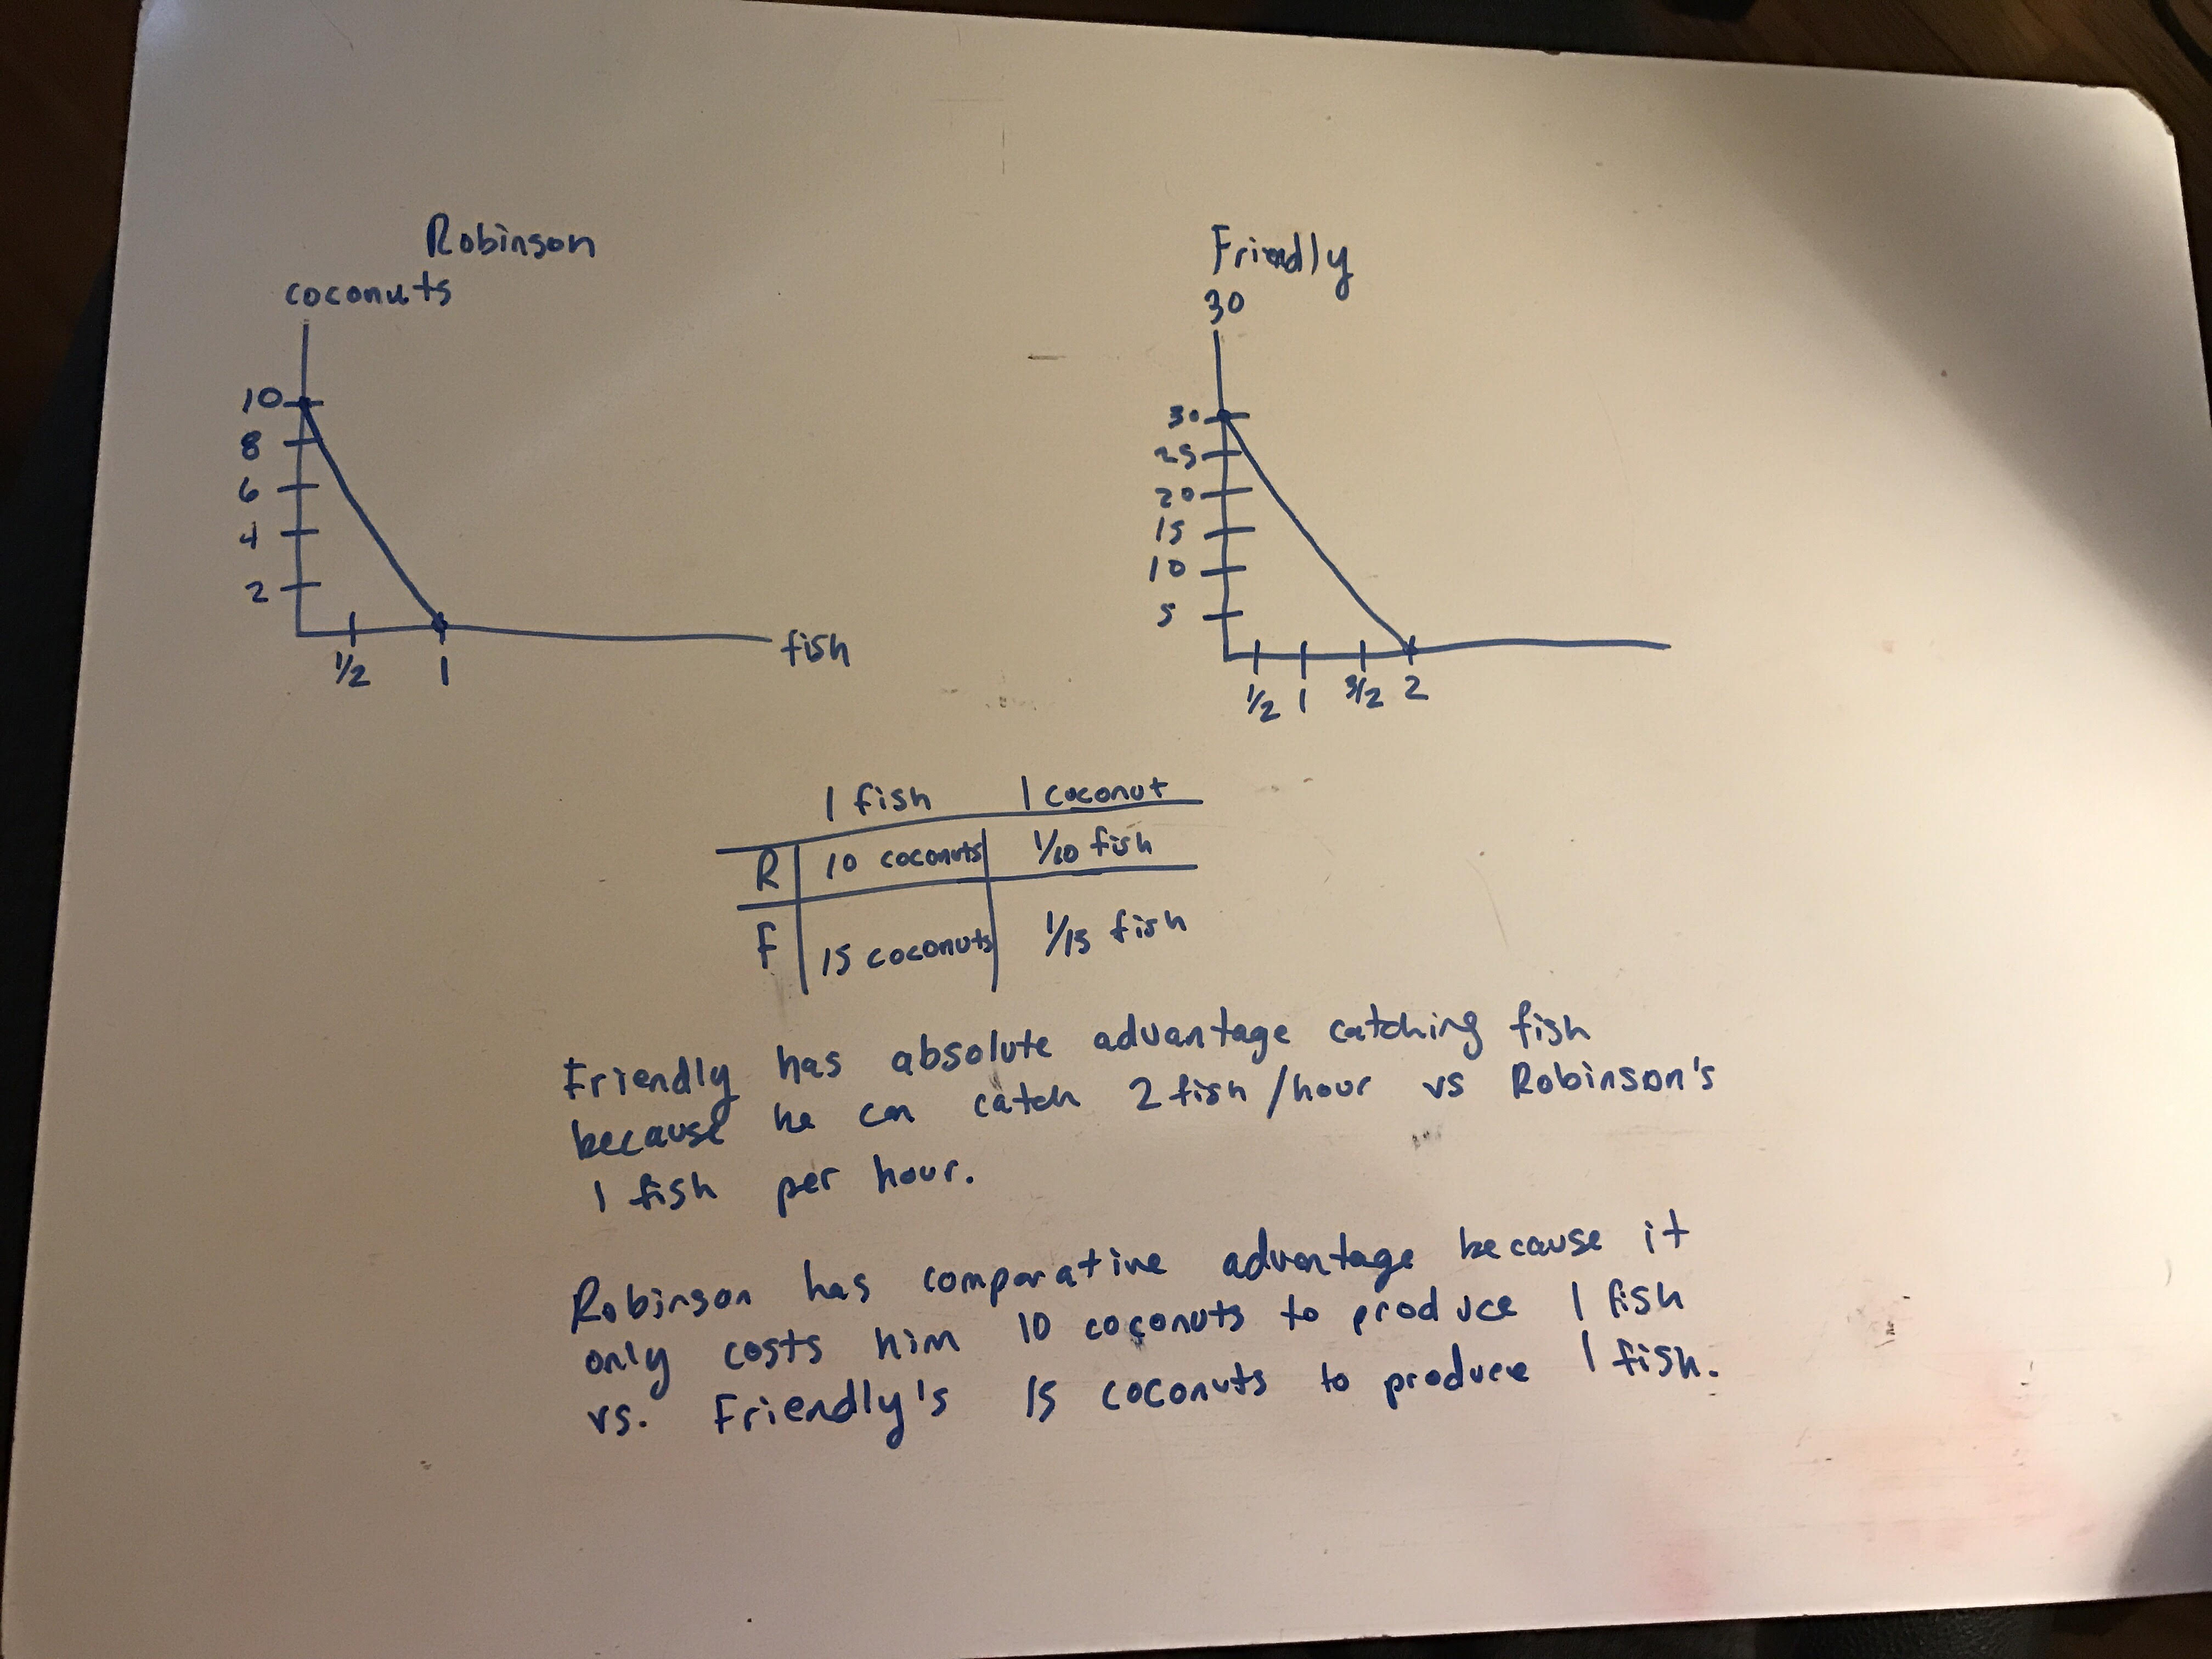 Robinson
coconuts
10
8
6
4
2
1/2
1
fish
Friendly
30
30
25
20
15
10
5
1/2
1
3/2
2
1 fish 1 coconut
R 10 coconuts 1/10 fish
F 15 coconuts 1/15 fish
Friendly has absolute advantage catching fish
because he can catch 2 fish/hour vs Robinson's
1 fish per hour.
Robinson has comparative advantage because it
only costs him 10 coconuts to produce 1 fish
vs. Friendly's 15 coconuts to produce 1 fish.